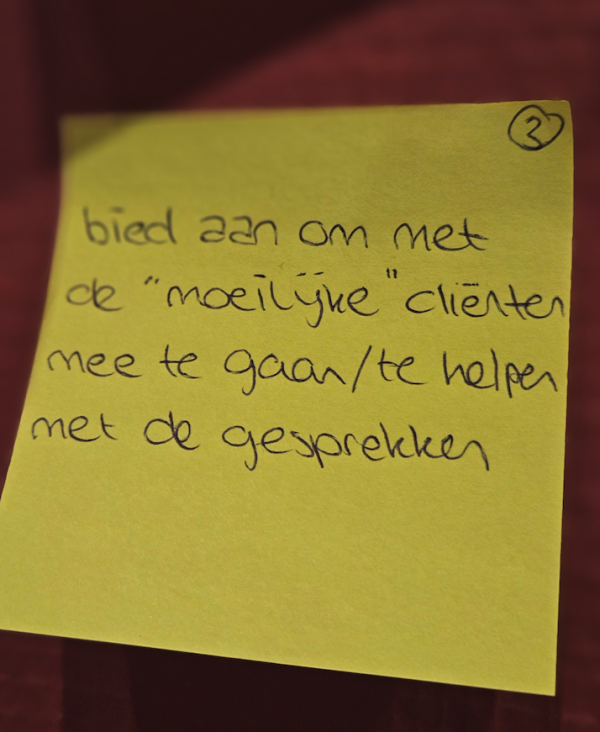 3
bied aan om met
de "moeilijke" cliënten
mee te gaan/te helpen
met de gesprekken